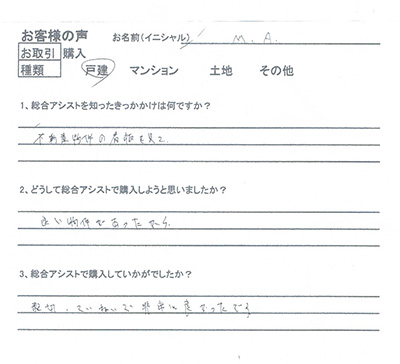 お客様の声 お名前(イニシャル) M. A.
お取引 購入
種類 戸建 マンション 土地 その他
1、総合アシストを知ったきっかかけは何ですか？
不動産物件の看板を見て
2、どうして総合アシストで購入しようと思いましたか？
良い物件であったから
3、総合アシストで購入していかがでしたか？
親切、ていねいで非常に良かったです